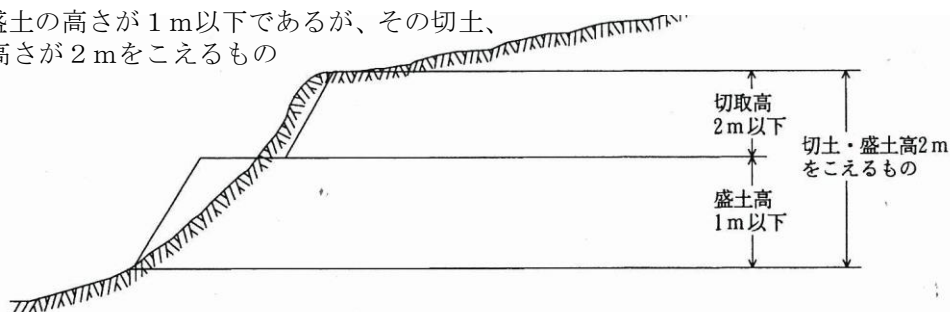 盛土の高さが1m以下であるが、その切土、
高さが2mをこえるもの
切取高
2m以下
切土・盛土高2m
をこえるもの
盛土高
1m以下